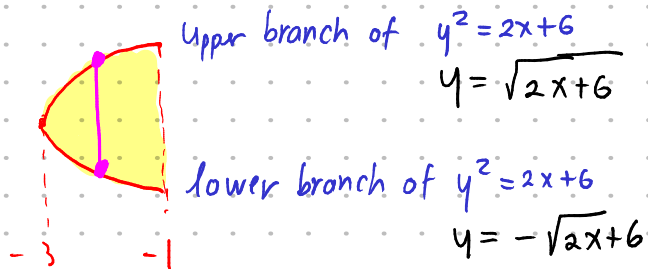 upper branch of y² = 2x+6
y = √(2x+6)
lower branch of y² = 2x+6
y = -√(2x)+6
-3 -1